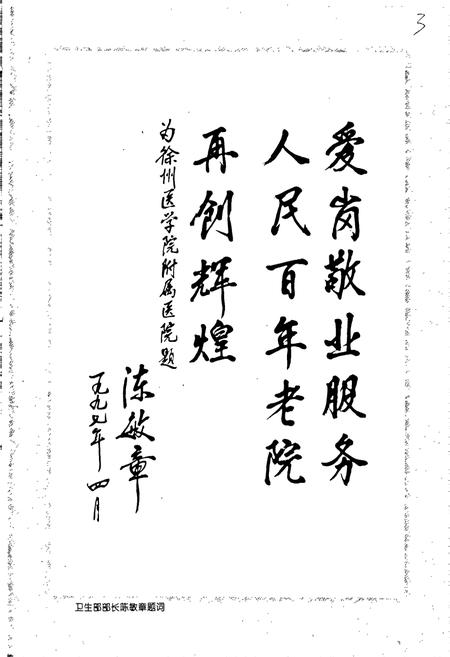 3
爱岗敬业服务
人民百年老院
再创辉煌
为徐州医学院附属医院题
陈敏章
一九九七年四月
卫生部部长陈敏章题词